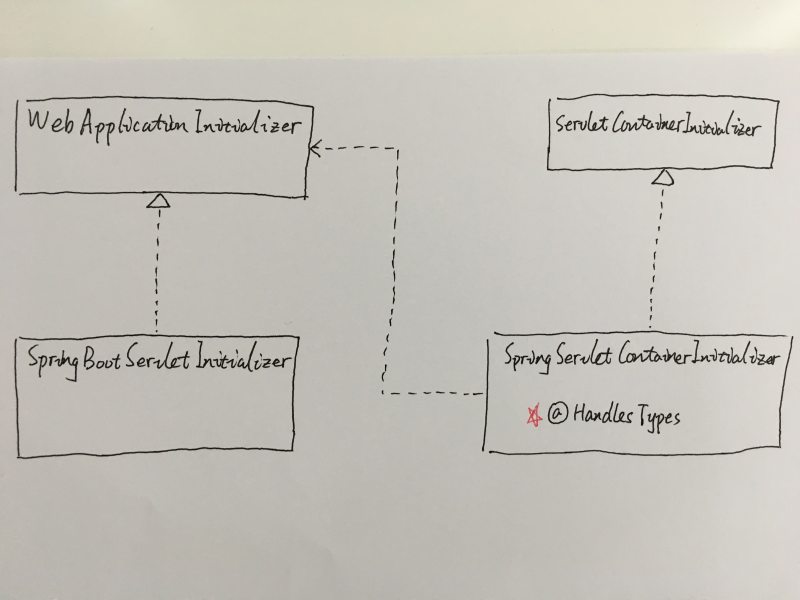 WebApplicationInitializer
ServletContainerInitializer
SpringBootServletInitializer
SpringServletContainerInitializer
@HandlesTypes